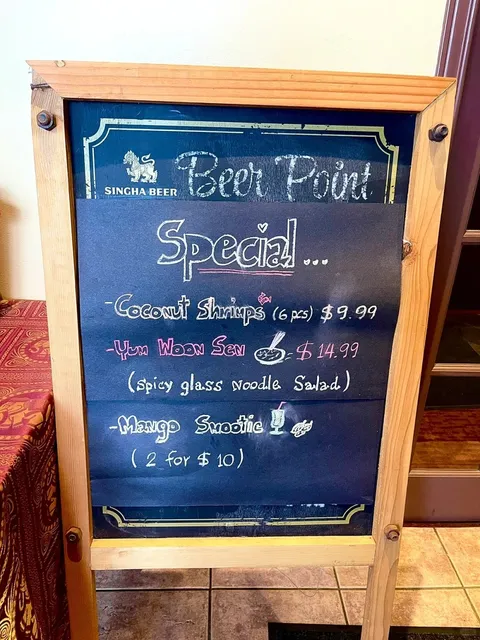 SINGHA BEER Beer Point
Special...
-Coconut Shrimps (6 pcs) $9.99
-Yum Woon Sen $14.99
(spicy glass noodle Salad)
-Mango Smootie
(2 for $10)